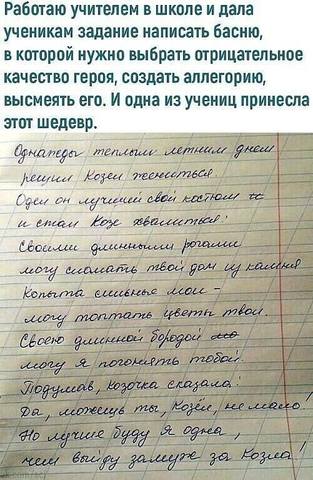 Работаю учителем в школе и дала
ученикам задание написать басню,
в которой нужно выбрать отрицательное
качество героя, создать аллегорию,
высмеять его. И одна из учениц принесла
этот шедевр.
Однажды теплым летним днем
решил Козел жениться.
Одел он лучший свой костюм
и стал Козе хвалиться:
Своими длинными рогами
могу сломать твой дом из камня
Копыта сильные мои -
могу топтать цветы твои.
Своею длинной бородой
могу я погонять тобой.
Подумав, Козочка сказала:
Да, можешь ты, Козёл, не мало!
Но лучше буду Я одна,
чем выйду замуж за Козла!